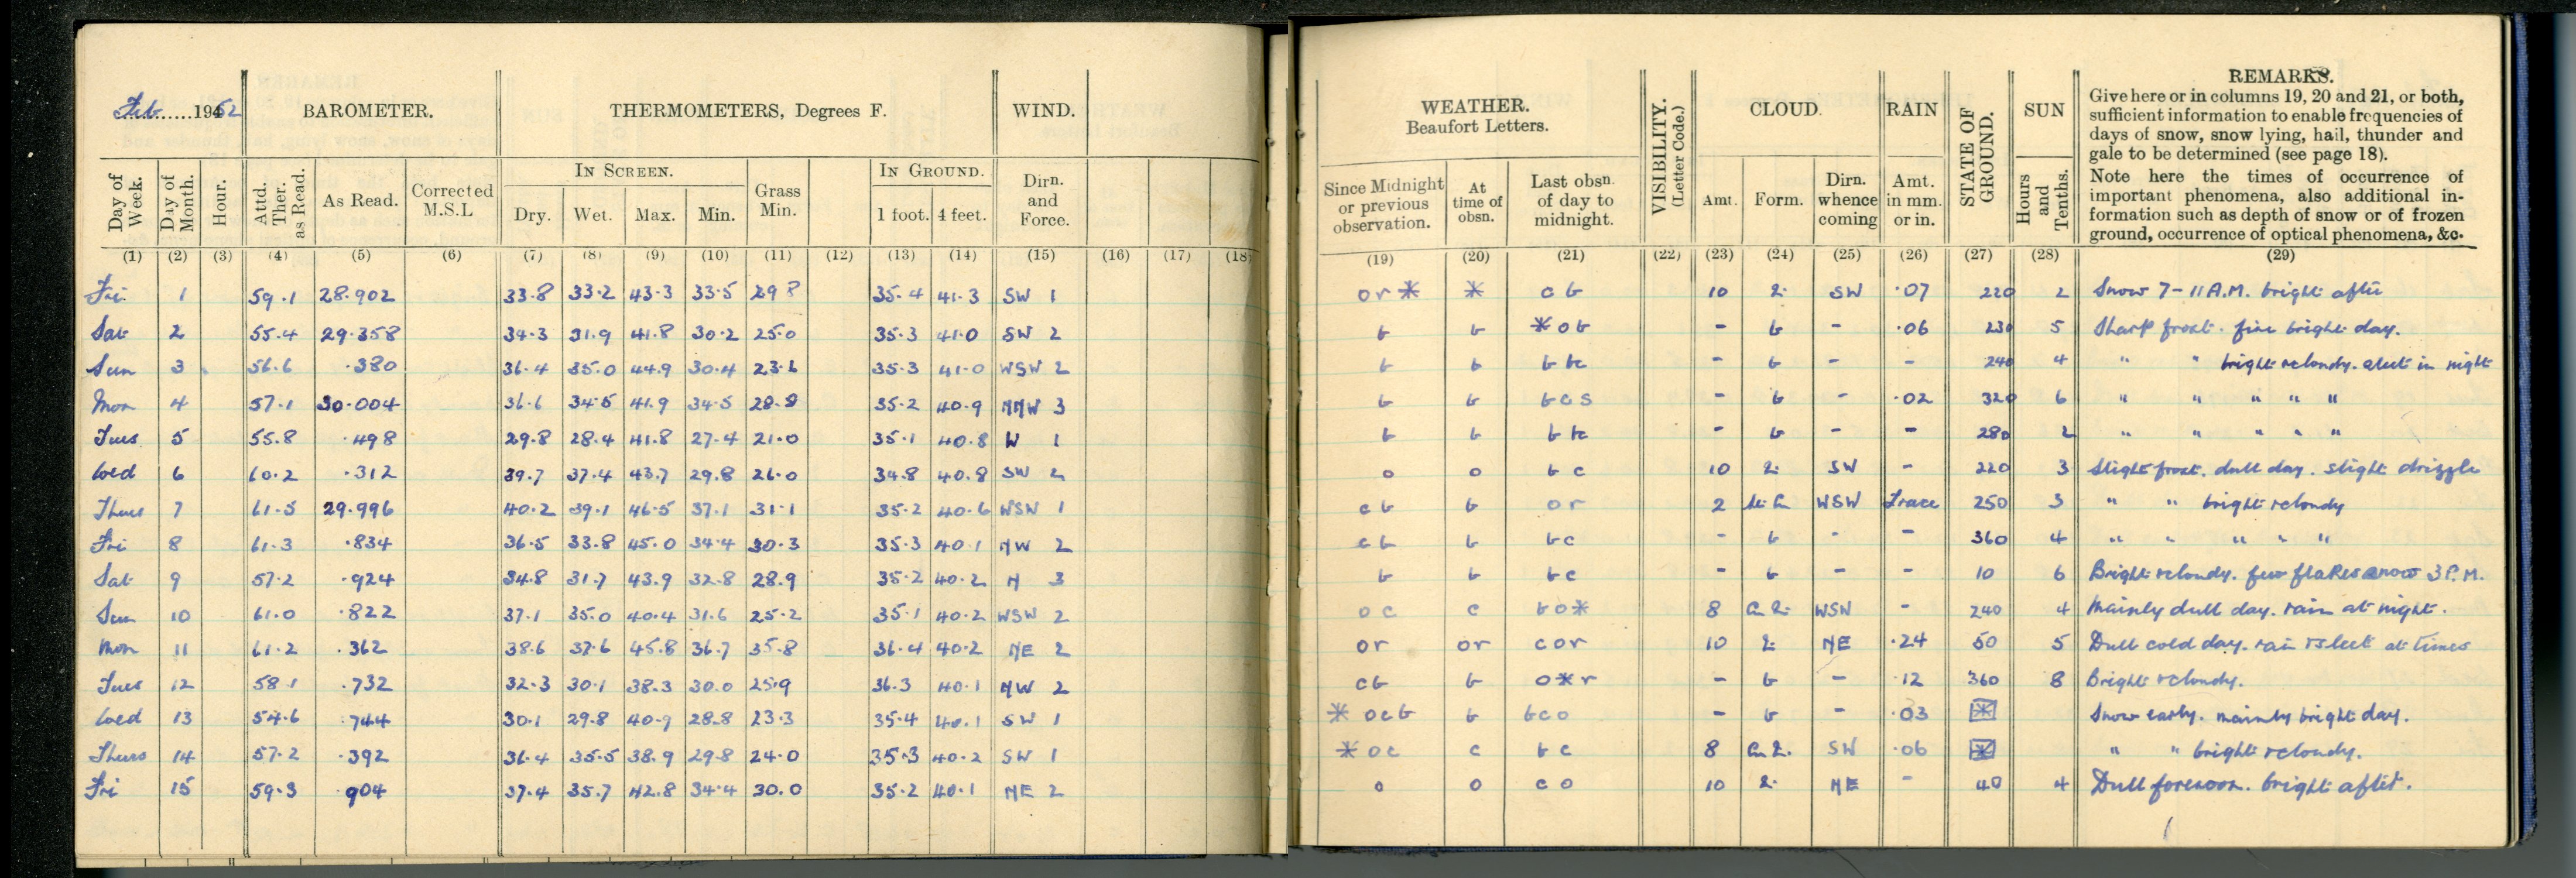 Feb ......1952 BAROMETER. THERMOMETERS, Degrees F. WIND.
Day of Week. Day of Month. Hour. Attd. Ther. as Read. As Read. Corrected M.S.L IN SCREEN. Dry. Wet. Max. Min. Grass Min. IN GROUND. 1 foot. 4 feet. Dirn. and Force.
(1) (2) (3) (4) (5) (6) (7) (8) (9) (10) (11) (12) (13) (14) (15) (16) (17) (18)
Fri 1 59.1 28.902 33.8 33.2 43.3 33.5 29.8 35.4 41.3 SW 1
Sat 2 55.4 29.358 34.3 31.9 41.8 30.2 25.0 35.3 41.0 SW 2
Sun 3 56.6 .380 36.4 35.0 44.9 30.4 23.6 35.3 41.0 WSW 2
Mon 4 57.1 30.004 36.6 34.5 41.9 34.5 28.8 35.2 40.9 NNW 3
Tues 5 55.8 .498 29.8 28.4 41.8 27.4 21.0 35.1 40.8 W 1
Wed 6 60.2 .312 39.7 37.4 43.7 29.8 26.0 34.8 40.8 SW 2
Thurs 7 61.5 29.996 40.2 39.1 46.5 37.1 31.1 35.2 40.6 WSW 1
Fri 8 61.3 .834 36.5 33.8 45.0 34.4 30.3 35.3 40.1 NW 2
Sat 9 57.2 .924 34.8 31.7 43.9 32.8 28.9 35.2 40.2 N 3
Sun 10 61.0 .822 37.1 35.0 40.4 31.6 25.2 35.1 40.2 WSW 2
Mon 11 61.2 .362 38.6 37.6 45.8 36.7 35.8 36.4 40.2 NE 2
Tues 12 58.1 .732 32.3 30.1 38.3 30.0 25.9 36.3 40.1 NW 2
Wed 13 54.6 .744 30.1 29.8 40.9 28.8 23.3 35.4 40.1 SW 1
Thurs 14 57.2 .392 36.4 35.5 38.9 29.8 24.0 35.3 40.2 SW 1
Fri 15 59.3 .904 37.4 35.7 42.8 34.4 30.0 35.2 40.1 NE 2
WEATHER. Beaufort Letters. VISIBILITY. (Letter Code.) CLOUD. RAIN STATE OF GROUND. SUN
Since Midnight or previous observation. At time of obsn. Last obsn. of day to midnight. Amt. Form. Dirn. whence coming Amt. in mm. or in. Hours and Tenths.
REMARKS.
Give here or in columns 19, 20 and 21, or both,
sufficient information to enable frequencies of
days of snow, snow lying, hail, thunder and
gale to be determined (see page 18).
Note here the times of occurrence of
important phenomena, also additional in-
formation such as depth of snow or of frozen
ground, occurrence of optical phenomena, &c.
(19) (20) (21) (22) (23) (24) (25) (26) (27) (28) (29)
or * * c b 10 SW .07 220 2 Snow 7-11 A.M. bright after
b b * o b - b - .06 230 5 Sharp frost. fine bright day.
b b b bc - b - - 240 4 " " bright & cloudy. sleet in night
b b b c s - b - .02 320 6 " " " " "
b b b bc - b - - 280 2 " " " " "
o o b c 10 SW - 220 3 Slight frost. dull day. slight drizzle
c b b o r 2 WSW Trace 250 3 " " bright & cloudy
c b b b c - b - - 360 4 " " " " "
b b b c - b - - 10 6 Bright & cloudy. few flakes snow 3 P.M.
o c c b o * 8 WSW - 240 4 Mainly dull day. rain at night.
o r o r c o r 10 NE .24 50 5 Dull cold day. rain & sleet at times
c b b o * r - b - .12 360 8 Bright & cloudy.
* o c b b b c o - b - .03 * Snow early. mainly bright day.
* o c c b c 8 SW .06 * " " bright & cloudy.
o o c o 10 NE - 40 4 Dull forenoon. bright after.